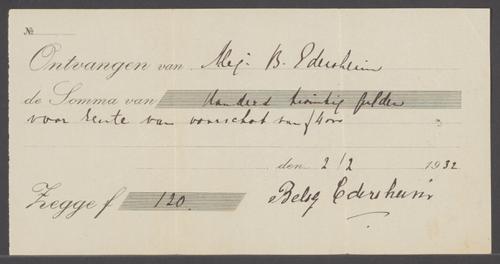 №
Ontvangen van Mej. B. Edersheim
de Somma van Honderd twintig gulden
voor rente van voorschot van f 4000
den 2/2 1932
Zegge f 120.
Betsy Edersheim